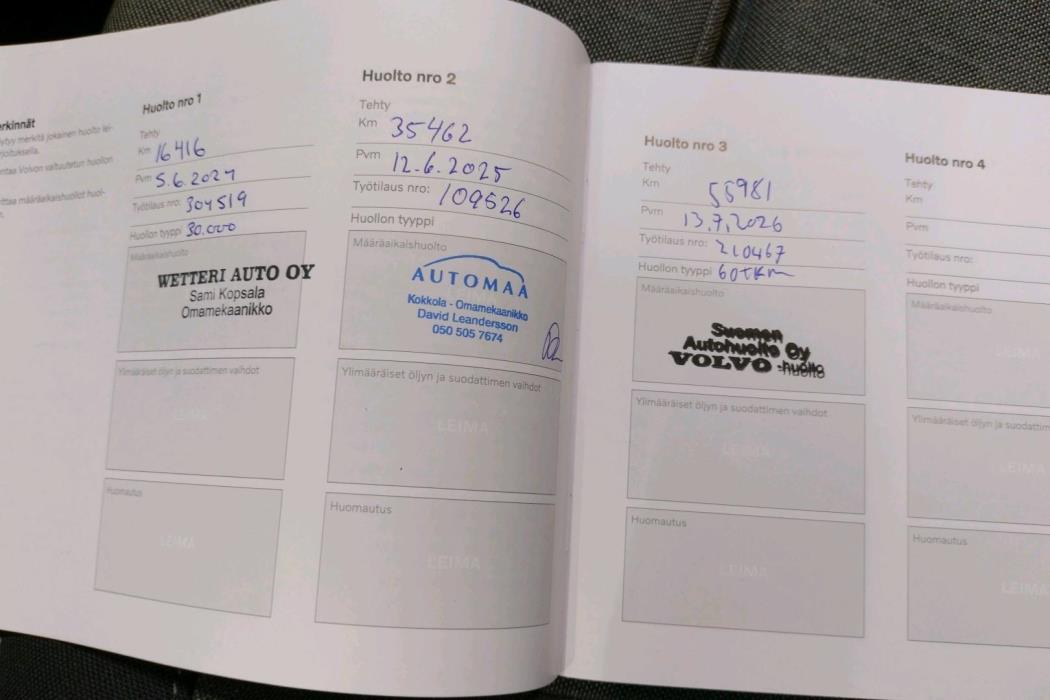 erkinnät
ytyy merkitä jokainen huolto lei-
rjoituksella.
ntaa Volvon valtuutetun huollon
rittaa määräaikaishuollot huol-
n.
Huolto nro 1
Tehty
Km 16416
Pvm 5.6.2024
Työtilaus nro: 304519
Huollon tyyppi 30.000
Määräaikaishuolto
WETTERI AUTO OY
Sami Kopsala
Omamekaanikko
Ylimääräiset öljyn ja suodattimen vaihdot
LEIMA
Huomautus
LEIMA
Huolto nro 2
Tehty
Km 35462
Pvm 12.6.2025
Työtilaus nro: 109526
Huollon tyyppi
Määräaikaishuolto
AUTOMAA
Kokkola - Omamekaanikko
David Leandersson
050 505 7674
Ylimääräiset öljyn ja suodattimen vaihdot
LEIMA
Huomautus
LEIMA
Huolto nro 3
Tehty
Km 58981
Pvm 13.7.2026
Työtilaus nro: 210467
Huollon tyyppi 60TKM
Määräaikaishuolto
Suomen
Autohuolto Oy
VOLVO -huolto
Ylimääräiset öljyn ja suodattimen vaihdot
LEIMA
Huomautus
LEIMA
Huolto nro 4
Tehty
Km
Pvm
Työtilaus nro:
Huollon tyyppi
Määräaikaishuolto
LEIMA
Ylimääräiset öljyn ja suodattim
LEIMA
Huomautus
LEIMA